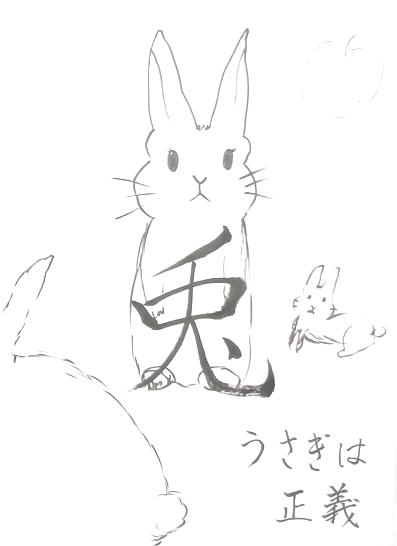 兎
うさぎは
正義